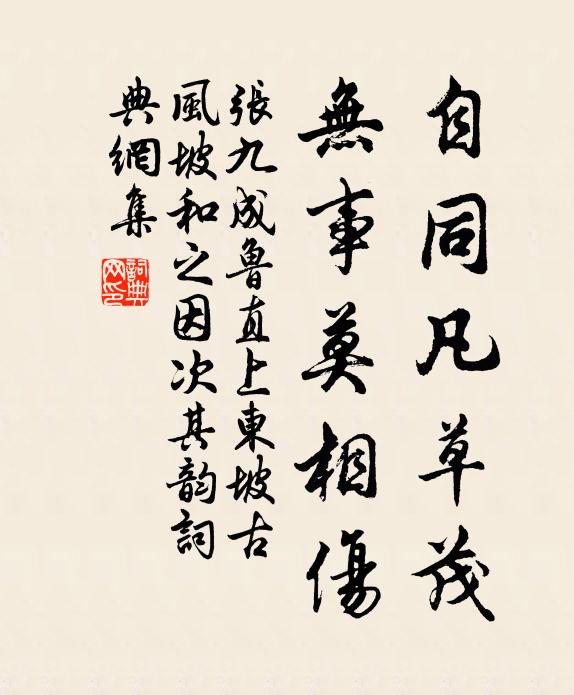 自同凡草茂
無事莫相傷
張九成魯直上東坡古
風坡和之因次其韵詞
典網集
詞典
网印